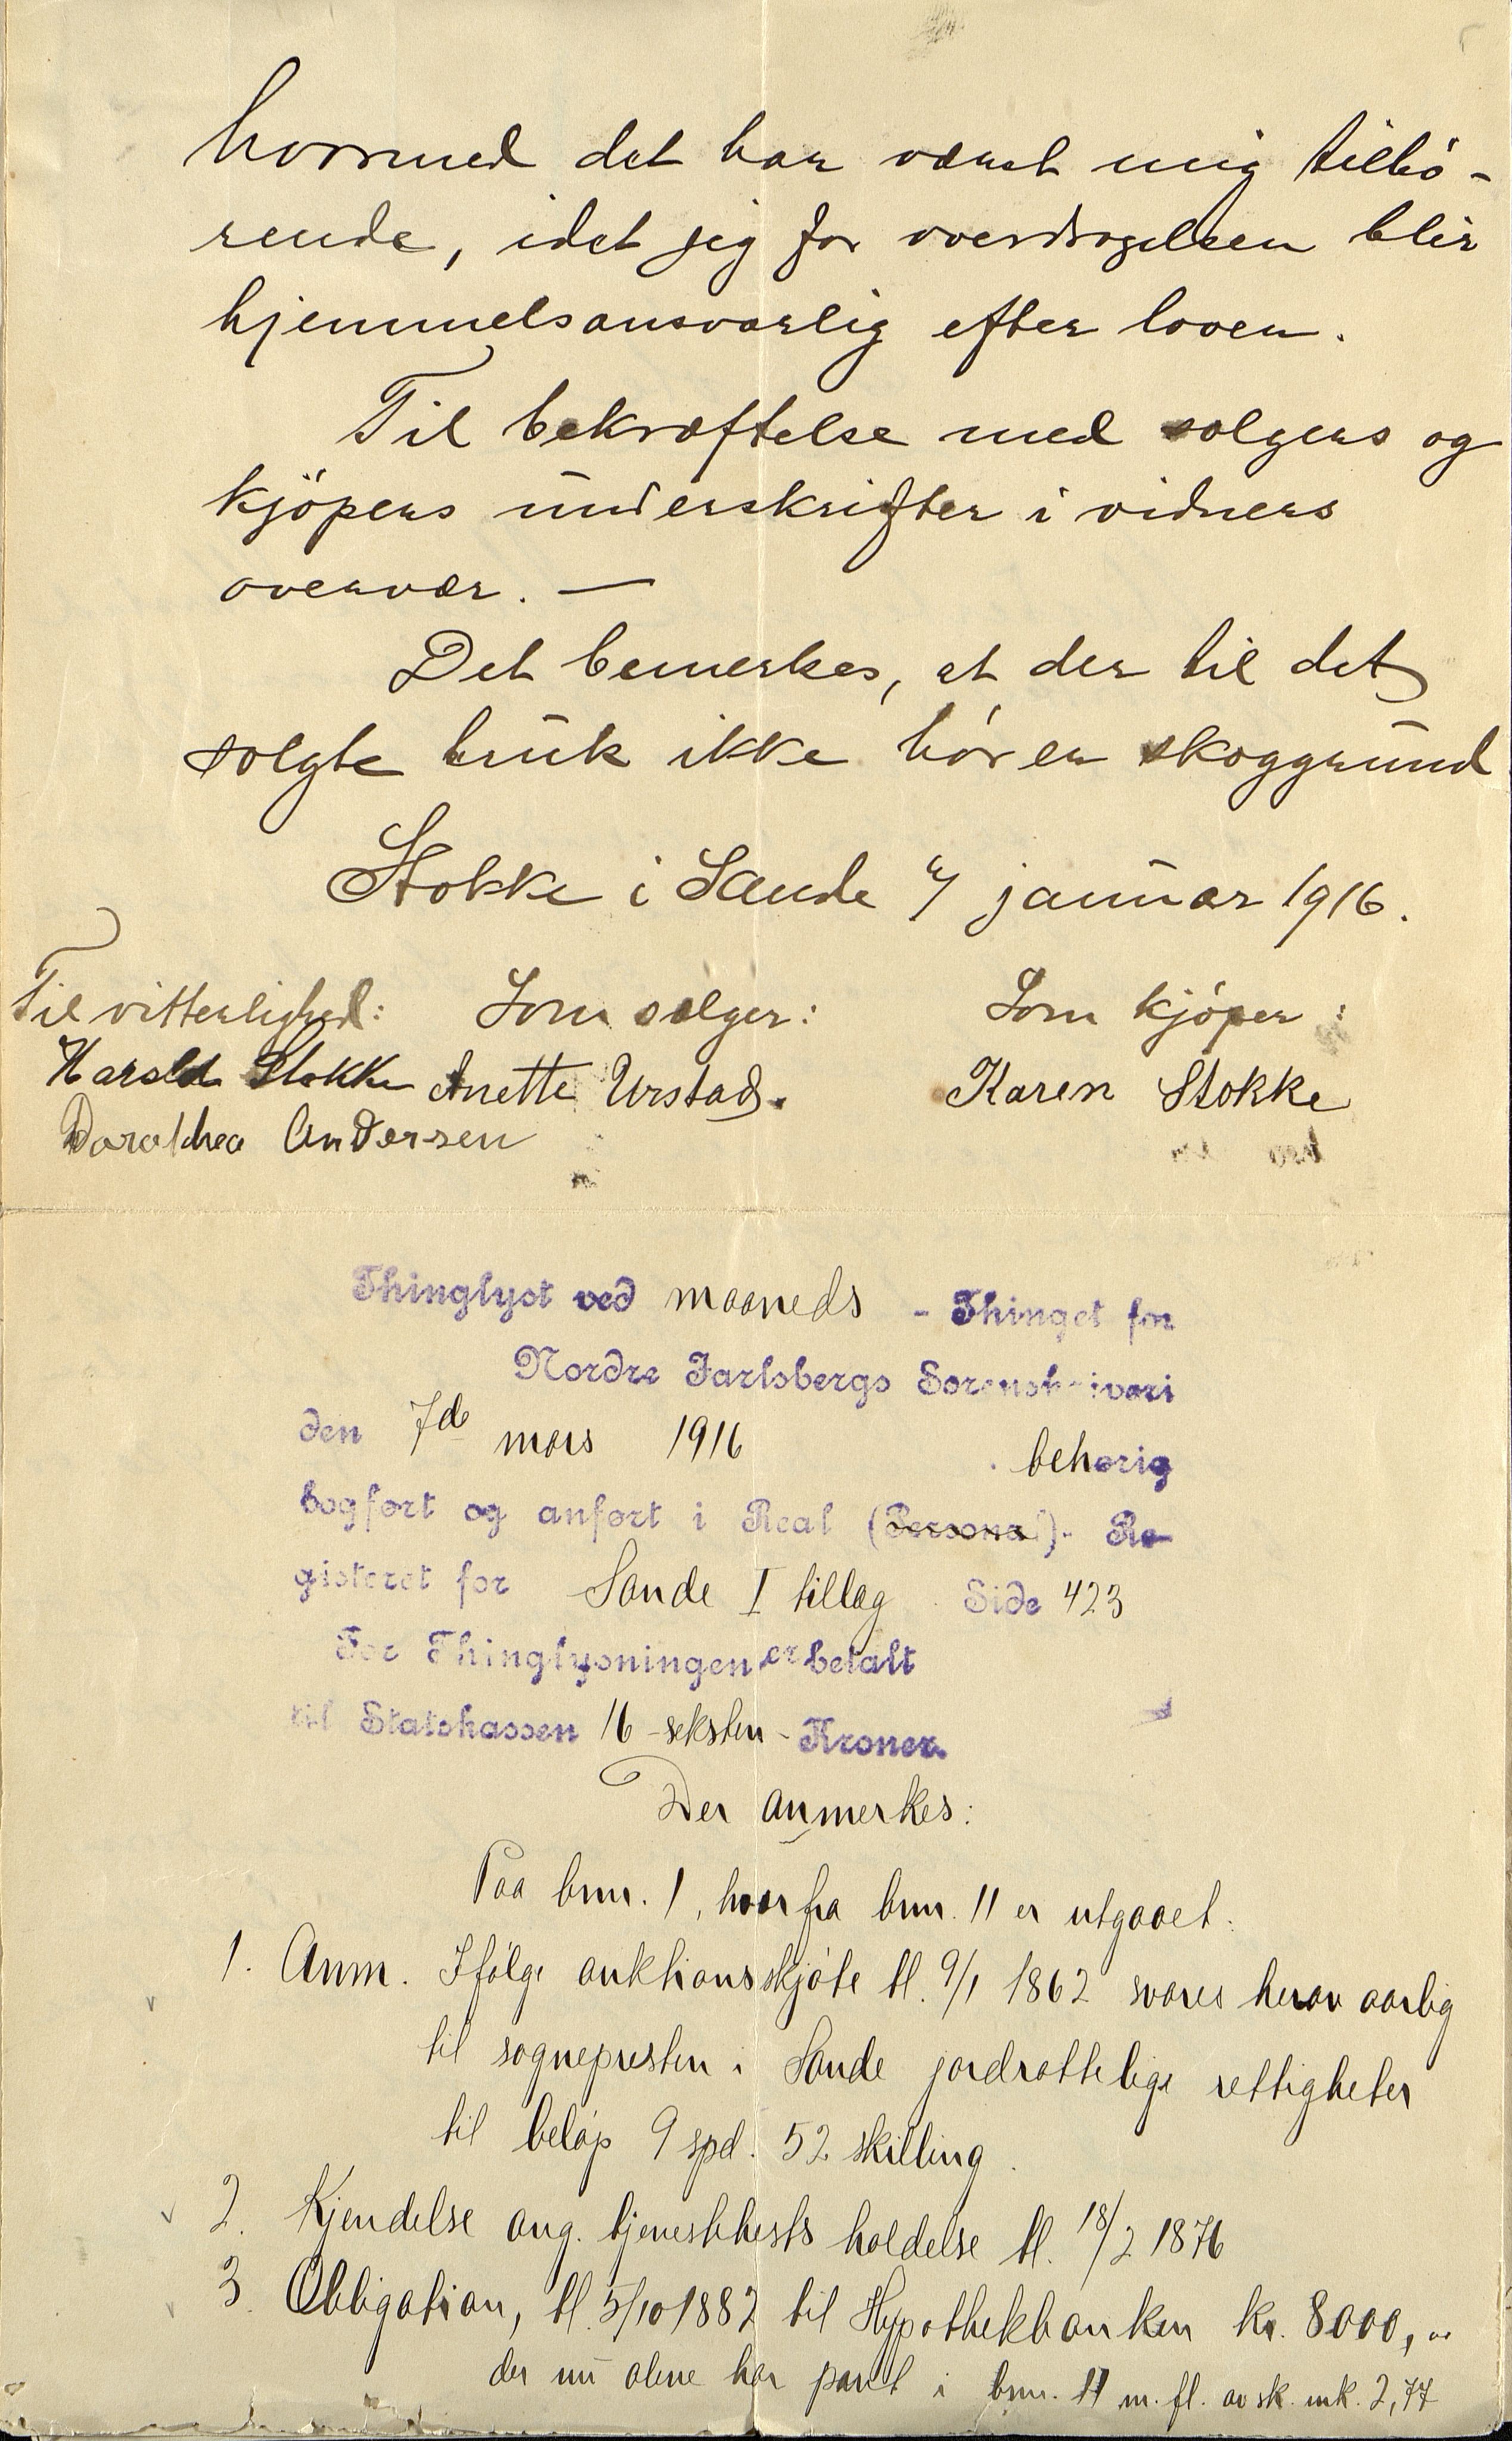 hvormed det har været mig tilhö-
rende, idet jeg for overdragelsen blir
hjemmelsansvarlig efter loven.
Til bekræftelse med sælgers og
kjöpers underskrifter i vidners
overvær. —
Det bemerkes, at der til det
solgte bruk ikke hörer skoggrund
Stokke i Sande januar 1916.
Til vitterlighed: Som sælger: Som kjöper:
Harald Stokke Anette Urstad. Karen Stokke
Dorothea Andersen
Thinglyst ved maaneds - Thinget for
Nordre Jarlsbergs Sorenskriveri
den 7de mars 1916 behørig
bogført og anført i Real (Personal)- Re-
gisteret for Sande I tillæg Side 423
For Thinglysningen er betalt
til Statskassen 16 - seksten - Kroner.
Der anmerkes:
Paa bnr. 1, hvorfra bnr. 11 er utgaaet:
1. Anm. Ifölge auktionsskjöte tl. 9/1 1862 svares herav aarlig
til sognepresten i Sande jordrottelige rettigheter
til beløp 9 spd. 52 skilling.
2. Kjendelse ang. tjenestehests holdelse tl. 18/2 1876
3. Obligation, tl. 5/10 1882 til Hypothekbanken kr. 8000,00
der nu alene har pant i bnr. 11 m. fl. av sk. mk. 2,77